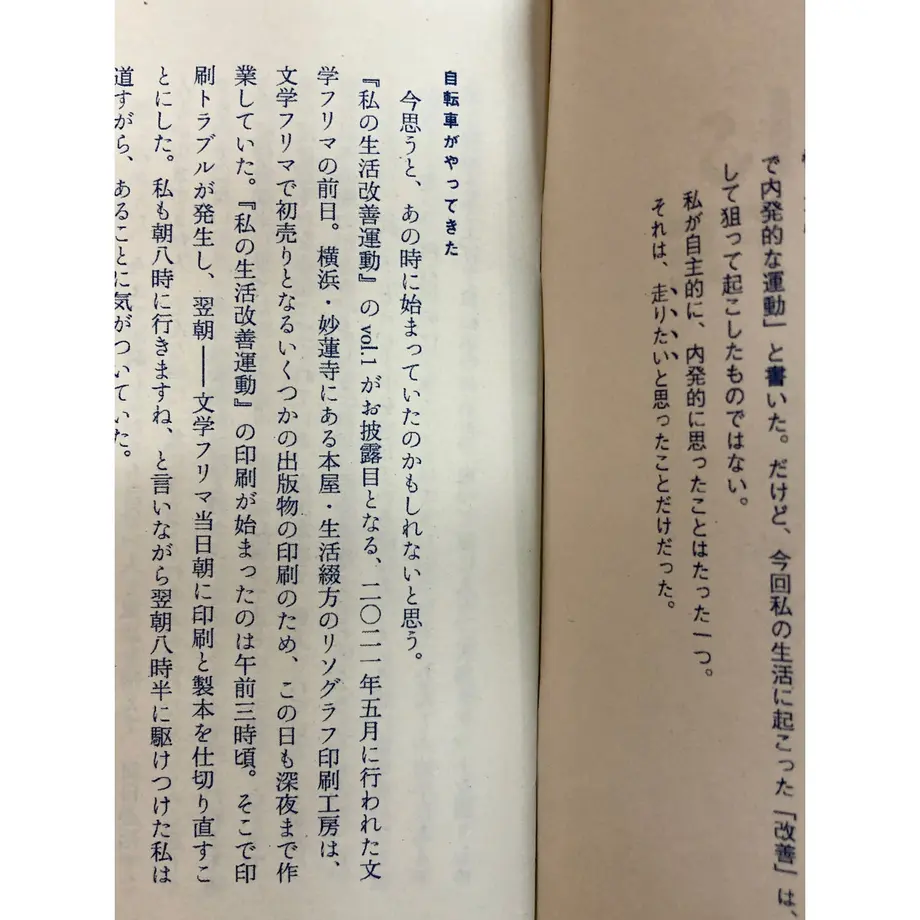 で内発的な運動」と書いた。だけど、今回私の生活に起こった「改善」は、
して狙って起こしたものではない。
私が自主的に、内発的に思ったことはたった一つ。
それは、走りたいと思ったことだけだった。
自転車がやってきた
今思うと、あの時に始まっていたのかもしれないと思う。
『私の生活改善運動』のvol.1がお披露目となる、二〇二一年五月に行われた文
学フリマの前日。横浜・妙蓮寺にある本屋・生活綴方のリソグラフ印刷工房は、
文学フリマで初売りとなるいくつかの出版物の印刷のため、この日も深夜まで作
業していた。『私の生活改善運動』の印刷が始まったのは午前三時頃。そこで印
刷トラブルが発生し、翌朝――文学フリマ当日朝に印刷と製本を仕切り直すこ
とにした。私も朝八時に行きますね、と言いながら翌朝八時半に駆けつけた私は
道すがら、あることに気がついていた。